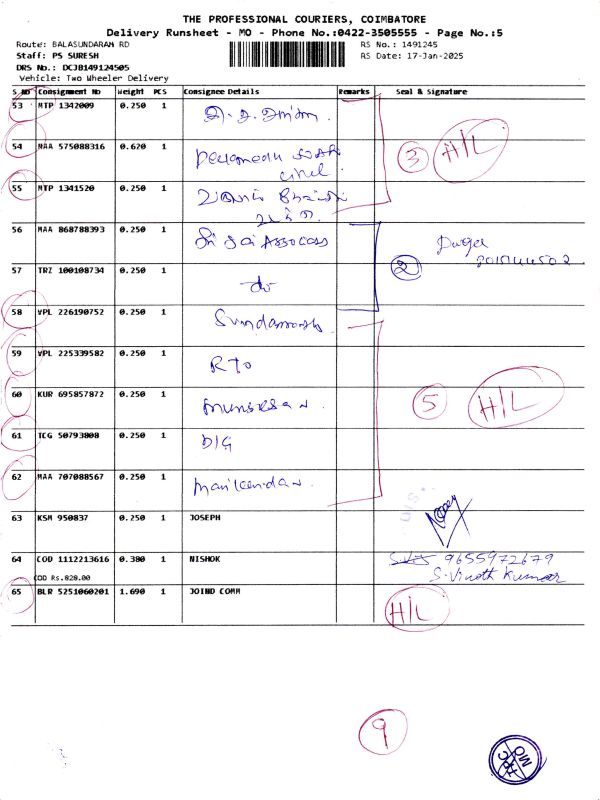 THE PROFESSIONAL COURIERS, COIMBATORE
Delivery Runsheet - MO - Phone No.:0422-3505555 - Page No.:5
Route: BALASUNDARAM RD
RS No.: 1491245
Staff: PS SURESH
RS Date: 17-Jan-2025
DRS No.: DCJB149124505
Vehicle: Two Wheeler Delivery
S No Consignment No Weight PCS Consignee Details Remarks Seal & Signature
53 MTP 1342009 0.250 1
54 MAA 575088316 0.620 1
3 H/L
55 MTP 1341520 0.250 1
56 MAA 868788393 0.250 1 Sri Sai Assocoss
2
57 TRZ 100108734 0.250 1 do
58 VPL 226190752 0.250 1
59 VPL 225339582 0.250 1 RTO
60 KUR 695857872 0.250 1 Munusesan
5 H/L
61 TCG 50793808 0.250 1 DIG
62 MAA 707088567 0.250 1 Manikandan
63 KSM 950837 0.250 1 JOSEPH
64 COD 1112213616 0.380 1 NISHOK
9655972679
COD Rs.828.00
S.Vinoth Kumar
65 BLR 5251060201 1.690 1 JOIND COMM
H/L
9